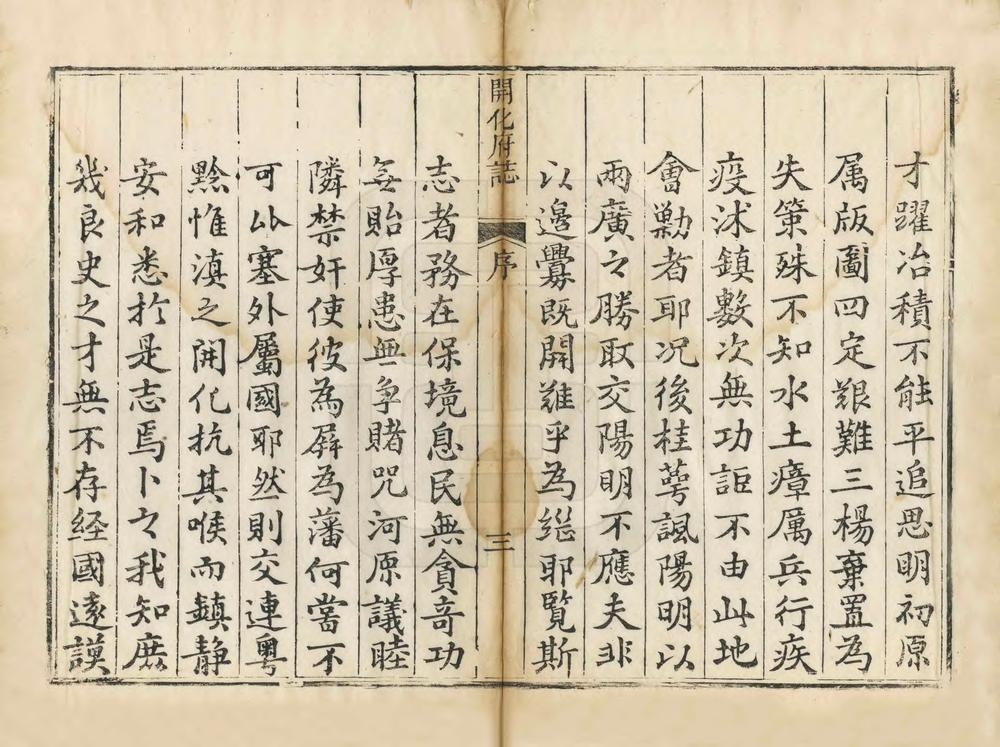 才躍冶積不能平追思明初原
属版圖四定艱難三楊棄置為
失策殊不知水土瘴厲兵行疾
疫沭鎮數次無功詎不由此地
會勦者耶况後桂萼諷陽明以
兩廣之勝取交陽明不應夫非
以邉釁既開難乎為継耶覧斯
開化府誌
序
三
志者務在保境息民無貪竒功
無貽厚患無争賭咒河原議睦
隣禁奸使彼為屏為藩何嘗不
可以塞外屬國耶然則交連粤
黔惟滇之開化抗其喉而鎮靜
安和悉扵是志焉卜之我知庶
㡬良史之才無不存経國逺謨